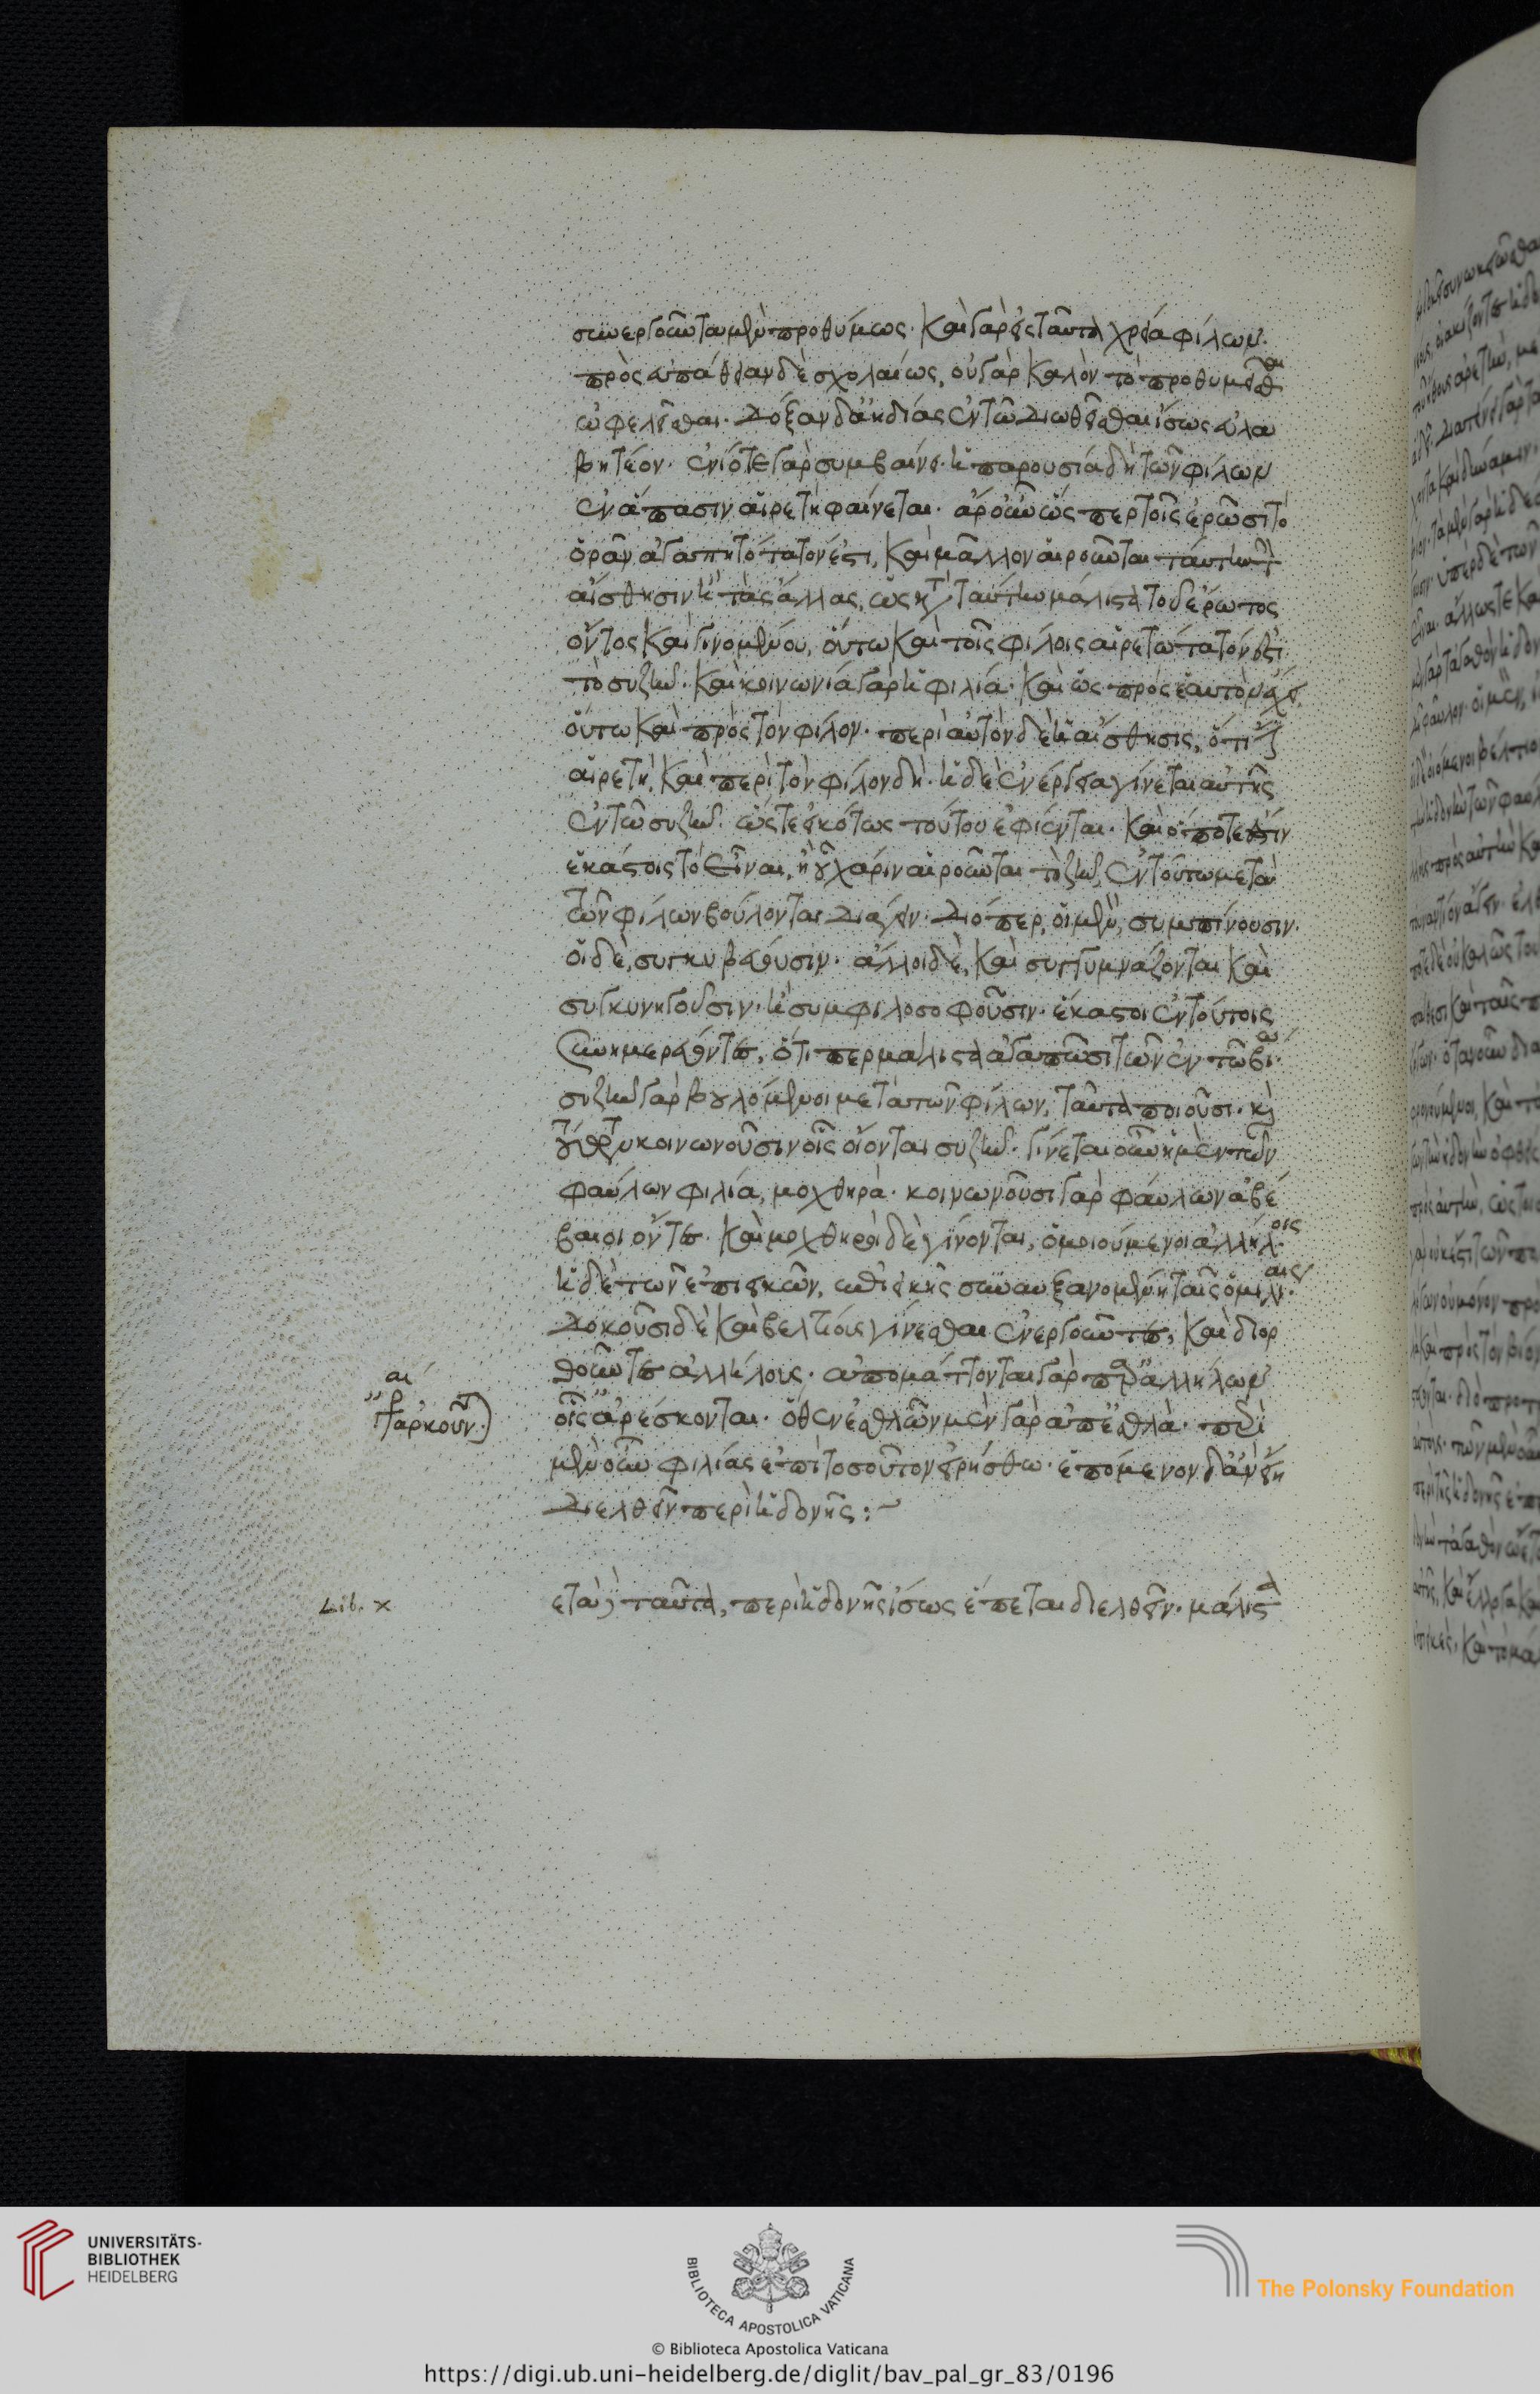 συνεργοῦντα μὲν προθύμως· καὶ γὰρ εἰς ταῦτα χρεία φίλων·
πρὸς εὐπάθειαν δὲ σχολαίως, οὐ γὰρ καλὸν τὸ προθυμεῖσθαι
ὠφελεῖσθαι. δόξαν δ' ἀηδίας ἐν τῶ διωθεῖσθαι ἴσως εὐλα
βητέον. ἐνίοτε γὰρ συμβαίνει. ἡ παρουσία δὴ τῶν φίλων
ἐν ἅπασιν αἱρετὴ φαίνεται. ἆρ' οὖν ὥσπερ τοῖς ἐρῶσι τὸ
ὁρᾶν ἀγαπητότατόν ἐστι, καὶ μᾶλλον αἱροῦνται ταύτην τὴν
αἴσθησιν ἢ τὰς ἄλλας, ὡς κατὰ ταύτην μάλιστα τοῦ ἔρωτος
ὄντος καὶ γινομένου, οὕτω καὶ τοῖς φίλοις αἱρετώτατόν ἐστι
τὸ συζῆν. καὶ κοινωνία γὰρ ἡ φιλία. καὶ ὡς πρὸς ἑαυτὸν ἔχει,
οὕτω καὶ πρὸς τὸν φίλον. περὶ αὐτὸν δὲ ἡ αἴσθησις, ὅτι ἔστιν
αἱρετή, καὶ περὶ τὸν φίλον δή. ἡ δὲ ἐνέργεια γίνεται αὐτῆς
ἐν τῶ συζῆν. ὥστε εἰκότως τούτου ἐφίενται. καὶ ὅ ποτέ ἐστιν
ἑκάστοις τὸ εἶναι, ἢ οὗ χάριν αἱροῦνται τὸ ζῆν, ἐν τούτω μετὰ
τῶν φίλων βούλονται διάγειν. διόπερ, οἱ μὲν, συμπίνουσιν.
οἱ δὲ, συγκυβεύουσιν. ἄλλοι δὲ, καὶ συγγυμνάζονται καὶ
συγκυνηγοῦσιν. ἢ συμφιλοσοφοῦσιν. ἕκαστοι ἐν τούτοις
συνημερεύοντες, ὅτι περ μάλιστα ἀγαπῶσι τῶν ἐν τῶ βίω.
συζῆν γὰρ βουλόμενοι μετὰ τῶν φίλων, ταῦτα ποιοῦσι. καὶ
τούτων κοινωνοῦσιν οἷς οἴονται συζῆν. γίνεται οὖν ἡ μὲν τῶν
φαύλων φιλία, μοχθηρά. κοινωνοῦσι γὰρ φαύλων ἀβέ
βαιοι ὄντες. καὶ μοχθηροὶ δὲ γίνονται, ὁμοιούμενοι ἀλλήλοις.
ἡ δὲ τῶν ἐπιεικῶν, ἐπιεικὴς συναυξανομένη ταῖς ὁμιλίαις.
δοκοῦσι δὲ καὶ βελτίους γίνεσθαι ἐνεργοῦντες, καὶ διορ
θοῦντες ἀλλήλους. ἀπομάττονται γὰρ παρ' ἀλλήλων
οἷς ἀρέσκονται. ὅθεν ἐσθλῶν μὲν γὰρ ἀπ' ἐσθλά. περὶ
μὲν οὖν φιλίας ἐπὶ τοσοῦτον εἰρήσθω. ἑπόμενον δ' ἂν εἴη
διελθεῖν περὶ ἡδονῆς :~
Lib. x
ετὰ ταῦτα, περὶ ἡδονῆς ἴσως ἕπεται διελθεῖν. μάλιστα
UNIVERSITÄTS-
BIBLIOTHEK
HEIDELBERG
BIBLIOTECA APOSTOLICA VATICANA
The Polonsky Foundation
© Biblioteca Apostolica Vaticana
https://digi.ub.uni-heidelberg.de/diglit/bav_pal_gr_83/0196